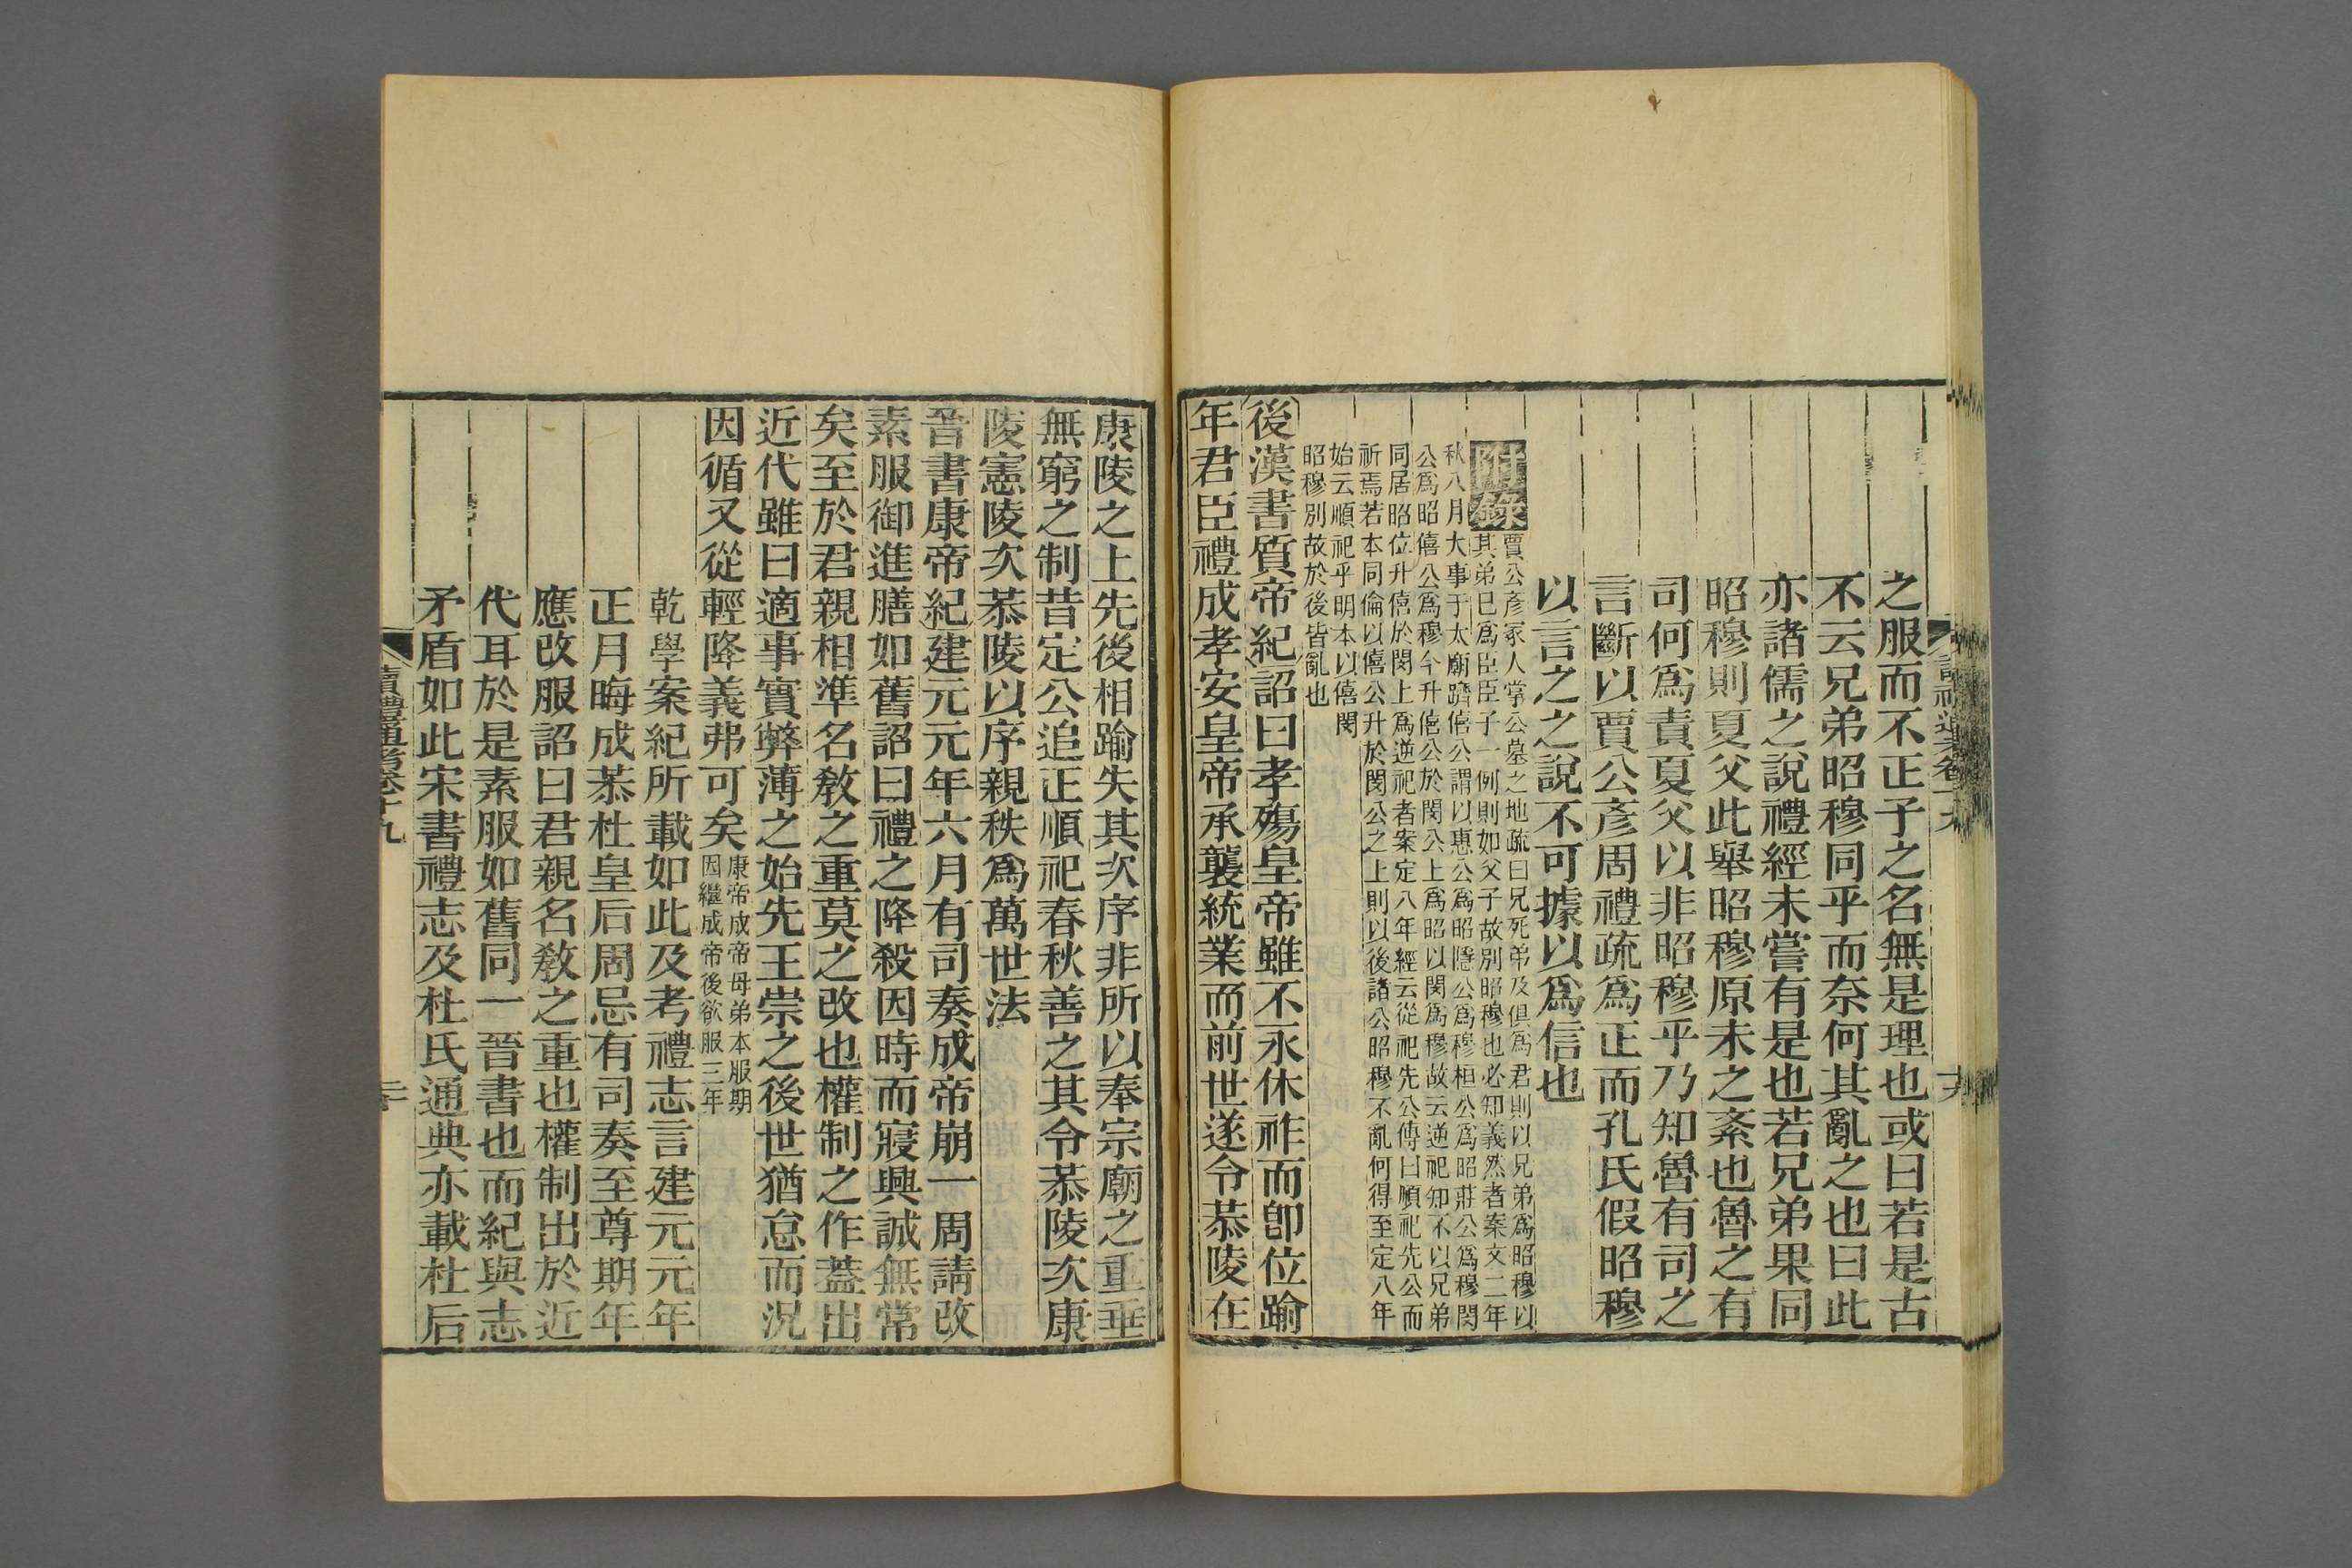 之服而不正子之名無是理也或曰若是古
不云兄弟昭穆同乎而奈何其亂之也曰此
亦諸儒之說禮經未嘗有是也若兄弟果同
昭穆則夏父此舉昭穆原未之紊也魯之有
司何爲責夏父以非昭穆乎乃知魯有司之
言斷以賈公彥周禮疏爲正而孔氏假昭穆
以言之之說不可據以爲信也
附錄
賈公彥冢人掌公墓之地疏曰兄死弟及俱爲君則以兄弟爲昭穆以
其弟已爲臣臣子一例則如父子故別昭穆也必知義然者案文二年
秋八月大事于太廟躋僖公謂以惠公爲昭隱公爲穆桓公爲昭莊公爲穆閔
公爲昭僖公爲穆今升僖公於閔公上爲昭以閔爲穆故云逆祀知不以兄弟
同居昭位升僖於閔上爲逆祀者案定八年經云從祀先公傳曰順祀先公而
祈焉若本同倫以僖公升於閔公之上則以後諸公昭穆不亂何得至定八年
始云順祀乎明本以僖閔
昭穆別故於後皆亂也
後漢書質帝紀詔曰孝殤皇帝雖不永休祚而卽位踰
年君臣禮成孝安皇帝承襲統業而前世遂令恭陵在
康陵之上先後相踰失其次序非所以奉宗廟之重垂
無窮之制昔定公追正順祀春秋善之其令恭陵次康
陵憲陵次恭陵以序親秩爲萬世法
晉書康帝紀建元元年六月有司奏成帝崩一周請改
素服御進膳如舊詔曰禮之降殺因時而寢興誠無常
矣至於君親相準名敎之重莫之改也權制之作蓋出
近代雖曰適事實弊薄之始先王崇之後世猶怠而況
因循又從輕降義弗可矣
康帝成帝母弟本服期
因繼成帝後欲服三年
乾學案紀所載如此及考禮志言建元元年
正月晦成恭杜皇后周忌有司奏至尊期年
應改服詔曰君親名敎之重也權制出於近
代耳於是素服如舊同一晉書也而紀與志
矛盾如此宋書禮志及杜氏通典亦載杜后
讀禮通考卷十九
二十